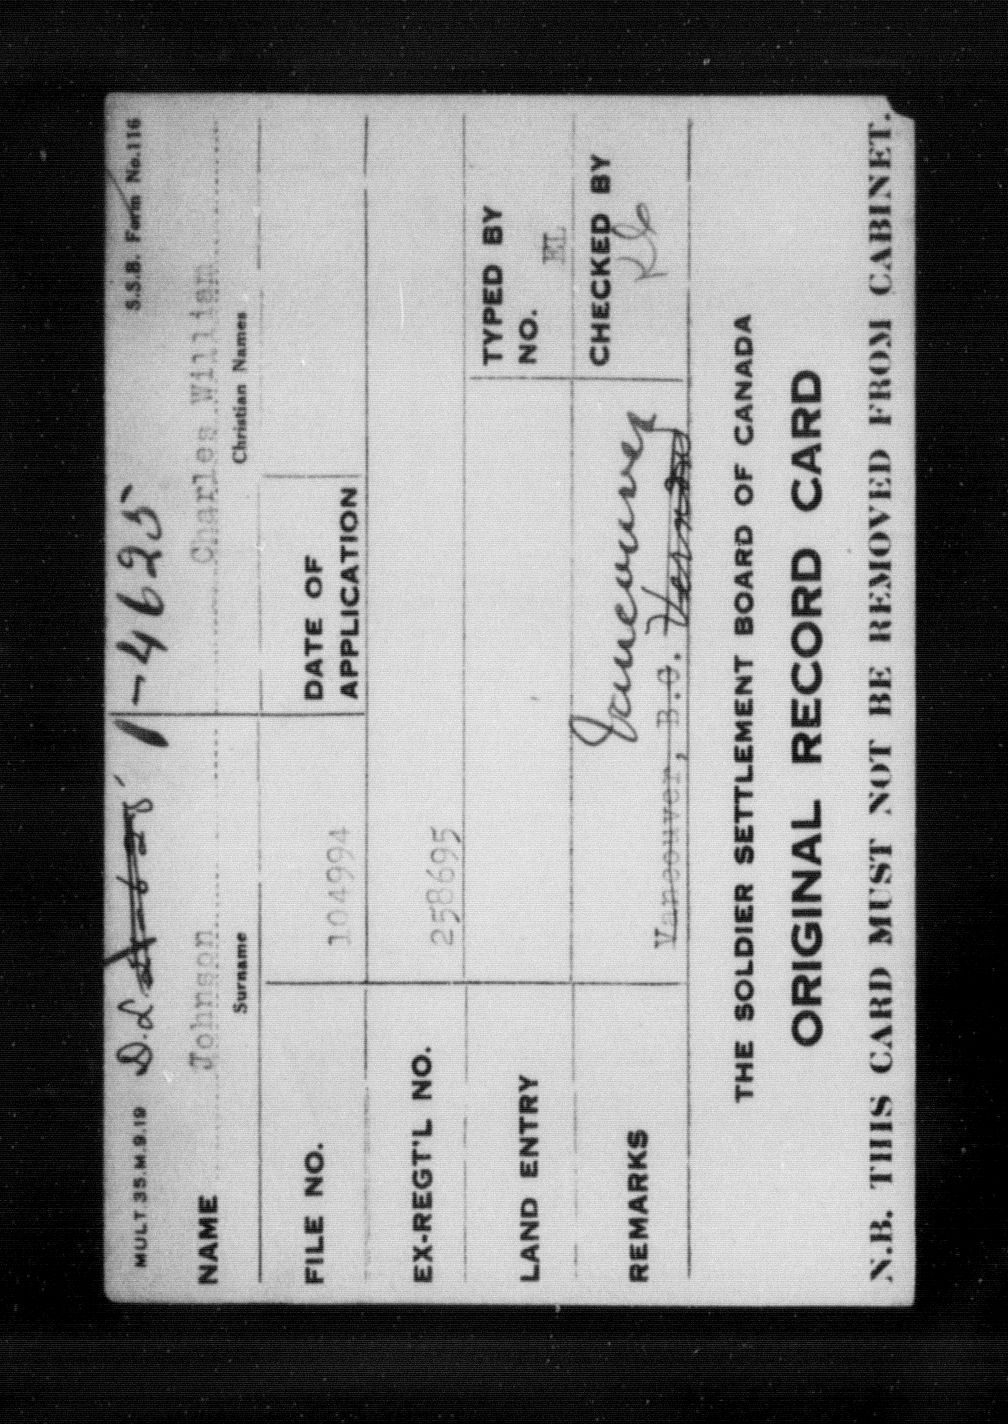 MULT 35.M.9.19 D.L. 1-4625 S.S.B. Form No.116
NAME Johnson Charles William
Surname Christian Names
FILE NO. 104994 DATE OF APPLICATION
EX-REGT'L NO. 258695
LAND ENTRY TYPED BY NO. EL
REMARKS Vancouver CHECKED BY
Vancouver, B.C. Vernon
THE SOLDIER SETTLEMENT BOARD OF CANADA
ORIGINAL RECORD CARD
N.B. THIS CARD MUST NOT BE REMOVED FROM CABINET.